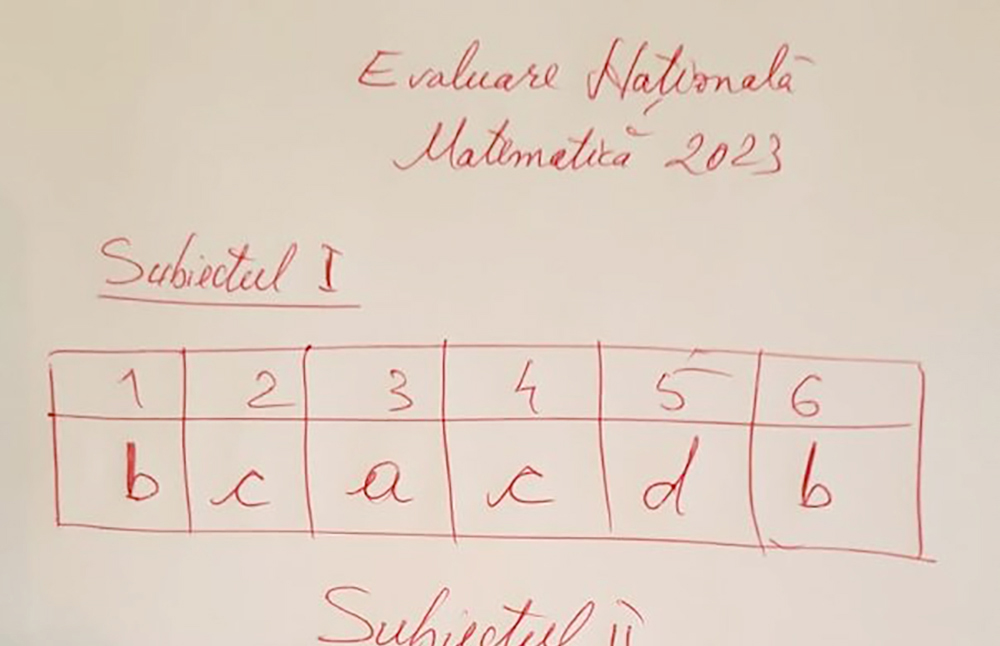 Evaluare Națională
Matematică 2023
Subiectul I
1 2 3 4 5 6
b c a c d b
Subiectul II